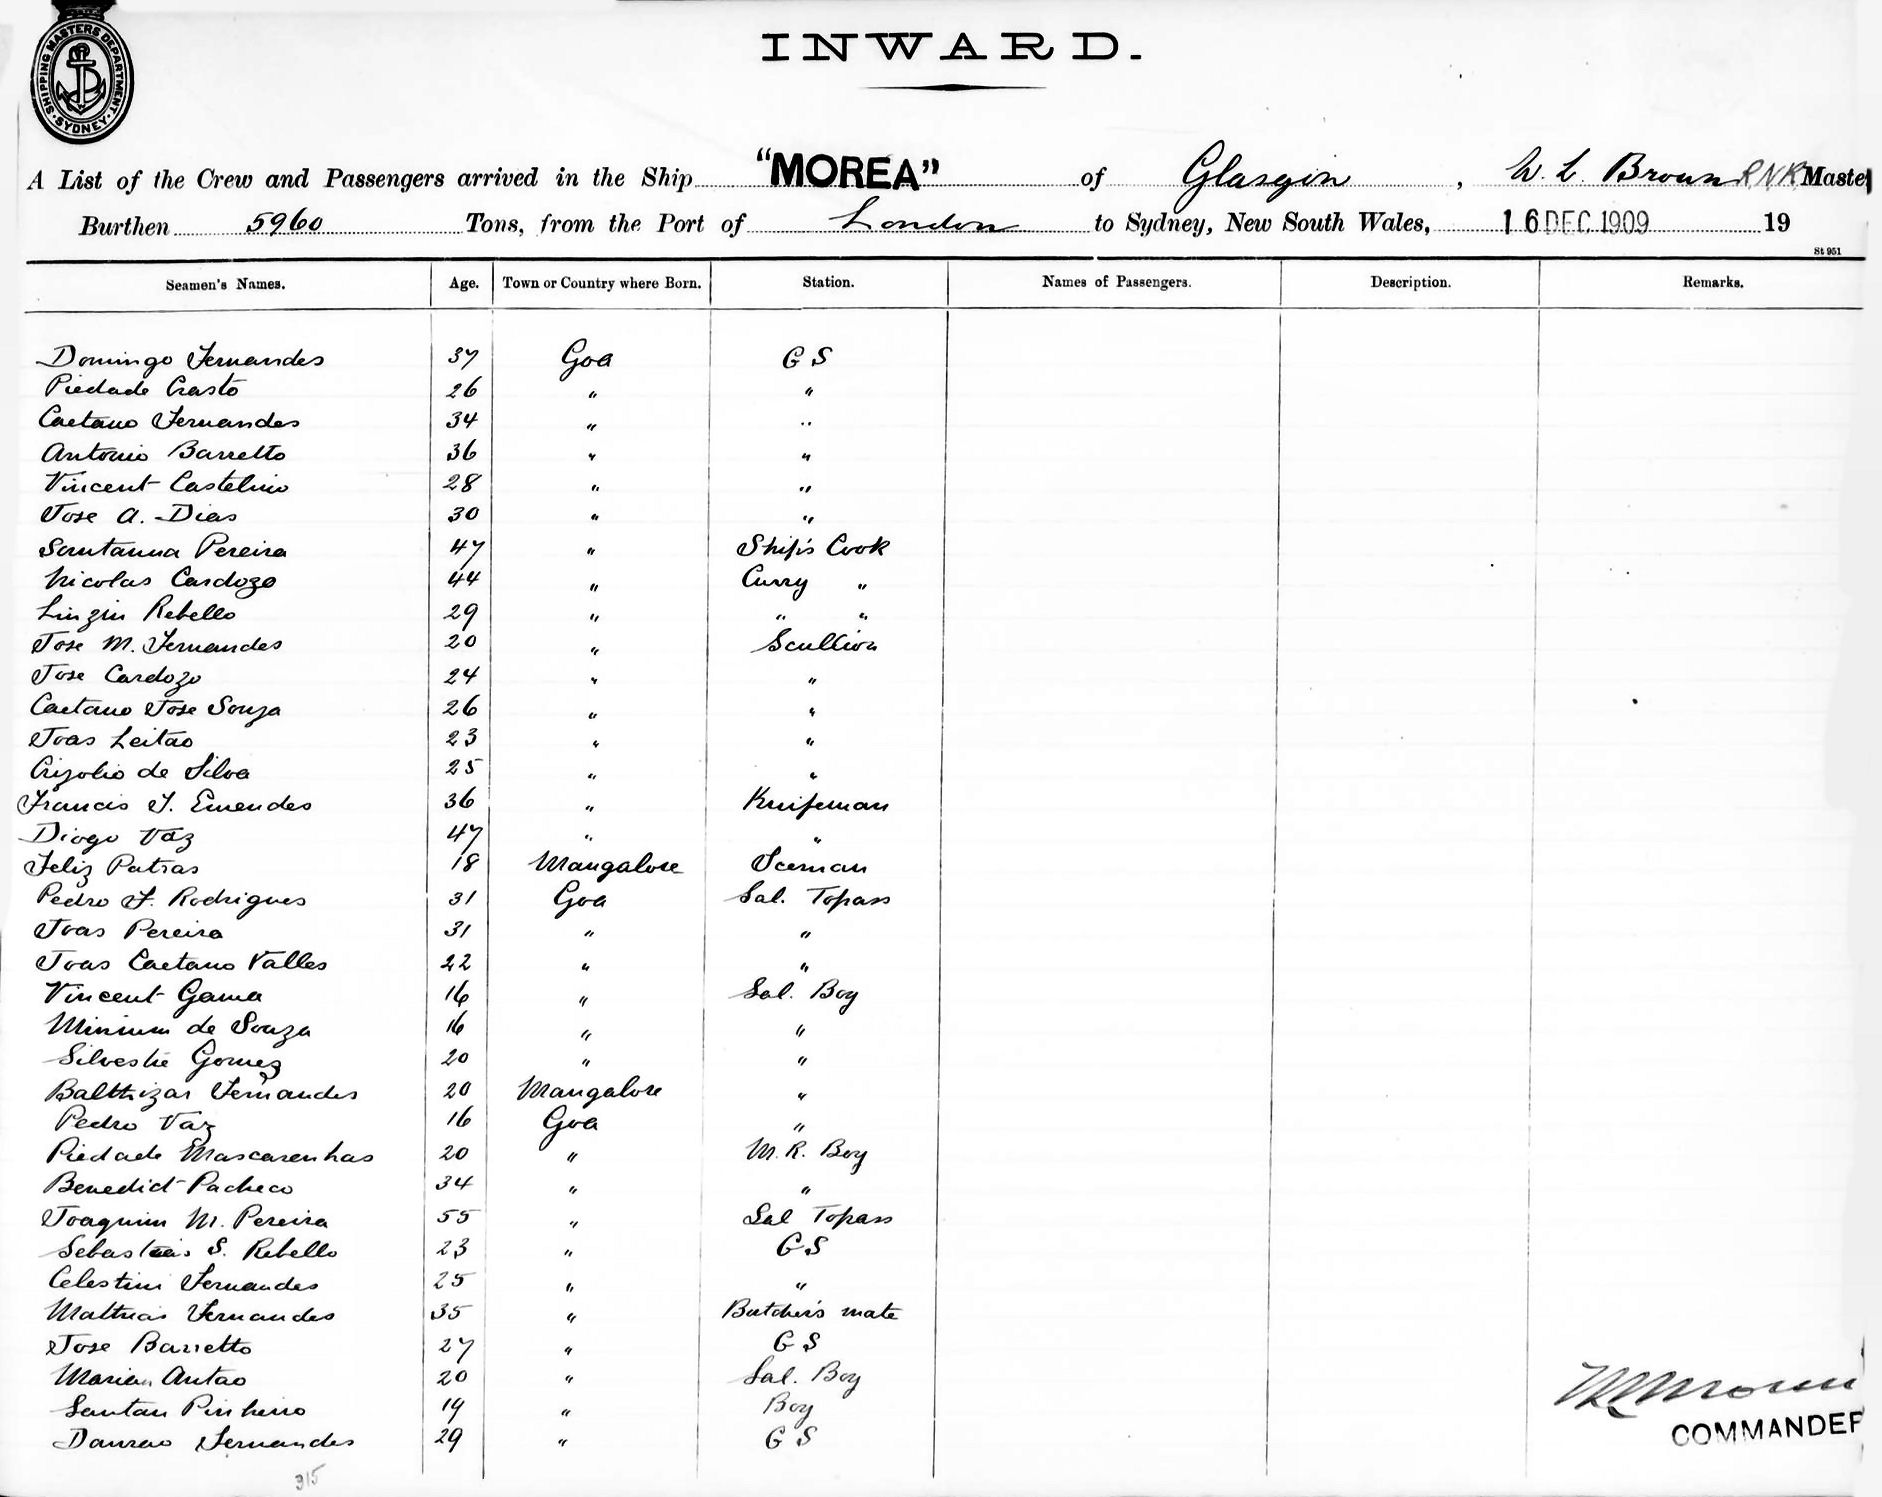 SHIPPING MASTERS DEPARTMENT · SYDNEY ·
INWARD.
A List of the Crew and Passengers arrived in the Ship "MOREA" of Glasgow, W. L. Broun RNR Master
Burthen 5960 Tons, from the Port of London to Sydney, New South Wales, 16 DEC 1909 19
St 951
Seamen's Names. Age. Town or Country where Born. Station. Names of Passengers. Description. Remarks.
Domingo Fernandes 37 Goa G S
Piedade Crasto 26 " "
Caetano Fernandes 34 " "
Antonio Barretto 36 " "
Vincent Castelino 28 " "
Jose A. Dias 30 " "
Santanna Pereira 47 " Ship's Cook
Nicolas Cardozo 44 " Curry "
Linzin Rebello 29 " " "
Jose M. Fernandes 20 " Scullion
Jose Cardozo 24 " "
Caetano Jose Souza 26 " "
Joas Leitao 23 " "
de Silva 25 " "
Francis F. Emendes 36 " Knifeman
Diogo Vaz 47 " "
Feliz Patras 18 Mangalore Iceman
Pedro F. Rodrigues 31 Goa Sal. Topass
Joas Pereira 31 " "
Joas Caetano Valles 22 " "
Vincent Gama 16 " Sal. Boy
de Souza 16 " "
Silvestre Gomez 20 " "
Balthizar Fernandes 20 Mangalore "
Pedro Vaz 16 Goa "
Piedade Mascarenhas 20 " M. R. Boy
Benedict Pacheco 34 " "
Joaquim M. Pereira 55 " Sal Topass
S. Rebello 23 " G S
Celestini Fernandes 25 " "
Mathias Fernandes 35 " Butcher's mate
Jose Barretto 27 " G S
Marian Antao 20 " Sal. Boy
Santan Pinheiro 19 " Boy
Fernandes 29 " G S
COMMANDER
315